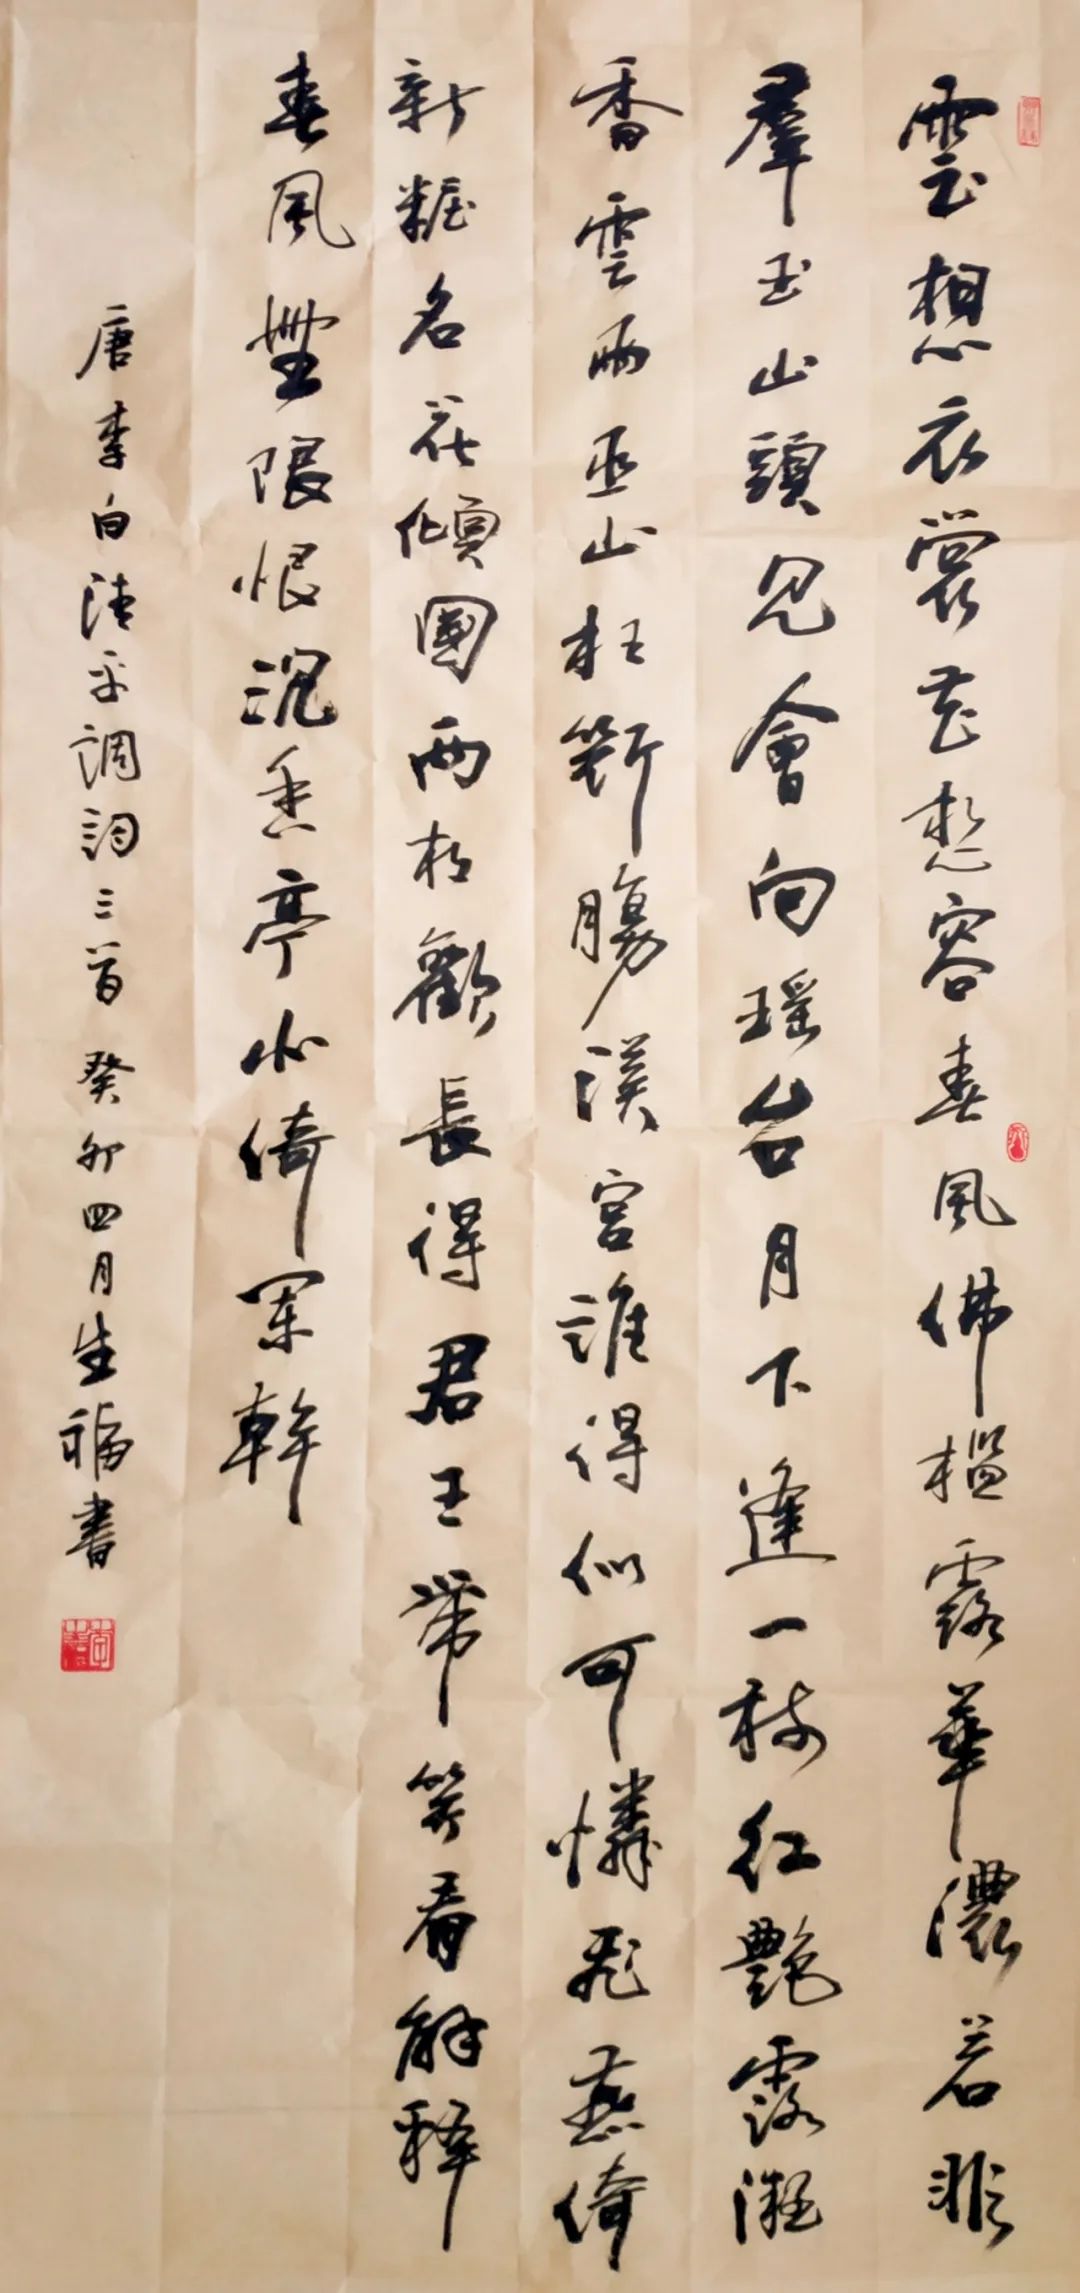 雲想衣裳花想容春風佛檻露華濃若非
羣玉山頭見會向瑶台月下逢一枝紅艷露凝
香雲雨巫山枉斷腸漢宮誰得似可憐飛燕倚
新粧名花傾國兩相歡長得君王帶笑看解釋
春風無限恨沉香亭北倚闌幹
唐李白清平調詞三首癸卯四月生福書